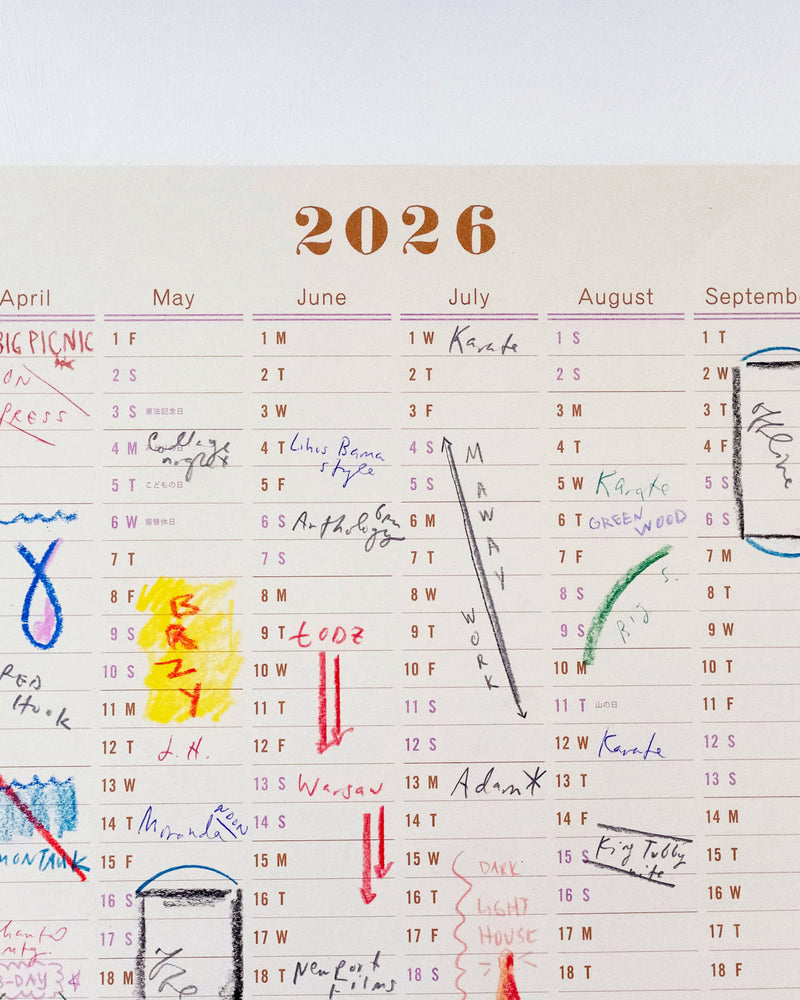 2026
April
BIG PICNIC
ON
PRESS
RED
Hook
MONTAUK
mtg.
B-DAY
May
1 F
2 S
3 S 憲法記念日
4 M College
5 T こどもの日
6 W 振替休日
7 T
8 F
9 S
10 S
11 M
BRZY
12 T J.H.
13 W
14 T Moranda NOON
15 F
16 S
17 S
18 M
June
1 M
2 T
3 W
4 T Linus Bama
style
5 F
6 S Anthology 6pm
7 S
8 M
9 T ŁODZ
10 W
11 T
12 F
13 S Warsaw
14 S
15 M
16 T
17 W
18 T New Port
Films
July
1 W Karate
2 T
3 F
4 S
5 S
6 M
7 T
8 W
9 T
10 F
11 S
12 S
MAWAY WORK
13 M Adam
14 T
15 W DARK
16 T LIGHT
17 F HOUSE
18 S
August
1 S
2 S
3 M
4 T
5 W Karate
6 T GREENWOOD
7 F
8 S
9 S
Big S.
10 M
11 T 山の日
12 W Karate
13 T
14 F
15 S King Tubby
nite
16 S
17 M
18 T
Septemb
1 T
2 W
3 T
4 F
5 S
6 S
offline
7 M
8 T
9 W
10 T
11 F
12 S
13 S
14 M
15 T
16 W
17 T
18 F